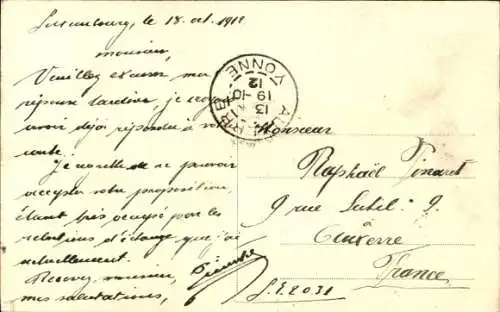 Luxembourg, le 18 oct. 1912
Monsieur,
Veuillez excuser ma
réponse tardive, je croyais
avoir déjà répondu à votre
carte.
Je regrette de ne pouvoir
accepter votre proposition,
étant très occupé pour les
relations d'échange que j'ai
actuellement.
Recevez, monsieur,
mes salutations,
YONNE
12
19-10
13
Monsieur
Raphaël
9 rue 9.
à
Auxerre
France
L.E. 2031